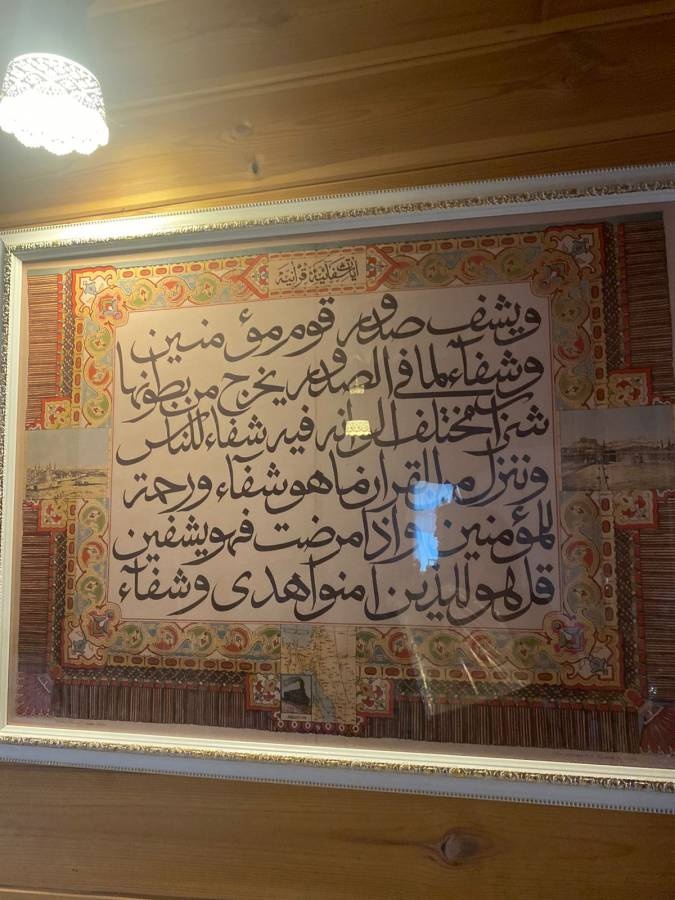 آيات شفائية قرآنية
ويشف صدور قوم مؤمنين
وشفآء لما في الصدور يخرج من بطونها
شراب مختلف الوانه فيه شفاء للناس
وننزل من القران ما هو شفآء ورحمة
للمؤمنين واذا مرضت فهو يشفين
قل هو للذين امنوا هدى وشفآء